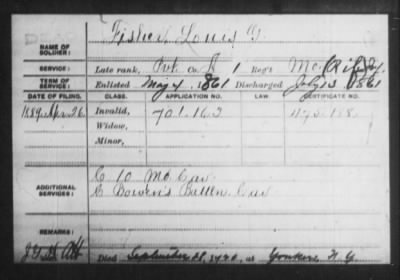 NAME OF SOLDIER: Fisher, Louis G.
SERVICE: Late rank, Pvt. Co. A 1 Reg't Mo. Rifles
TERM OF SERVICE: Enlisted May 7, 1861 Discharged July 3, 1861
DATE OF FILING. CLASS. APPLICATION NO. LAW. CERTIFICATE NO.
1889 Apr 26. Invalid, 701.162 493.188
Widow,
Minor,
ADDITIONAL SERVICES: C 10 Mo. Cav.
C Bowen's Battn Cav
REMARKS:
Att
Died September 28, 1920, at Yonkers N.Y.